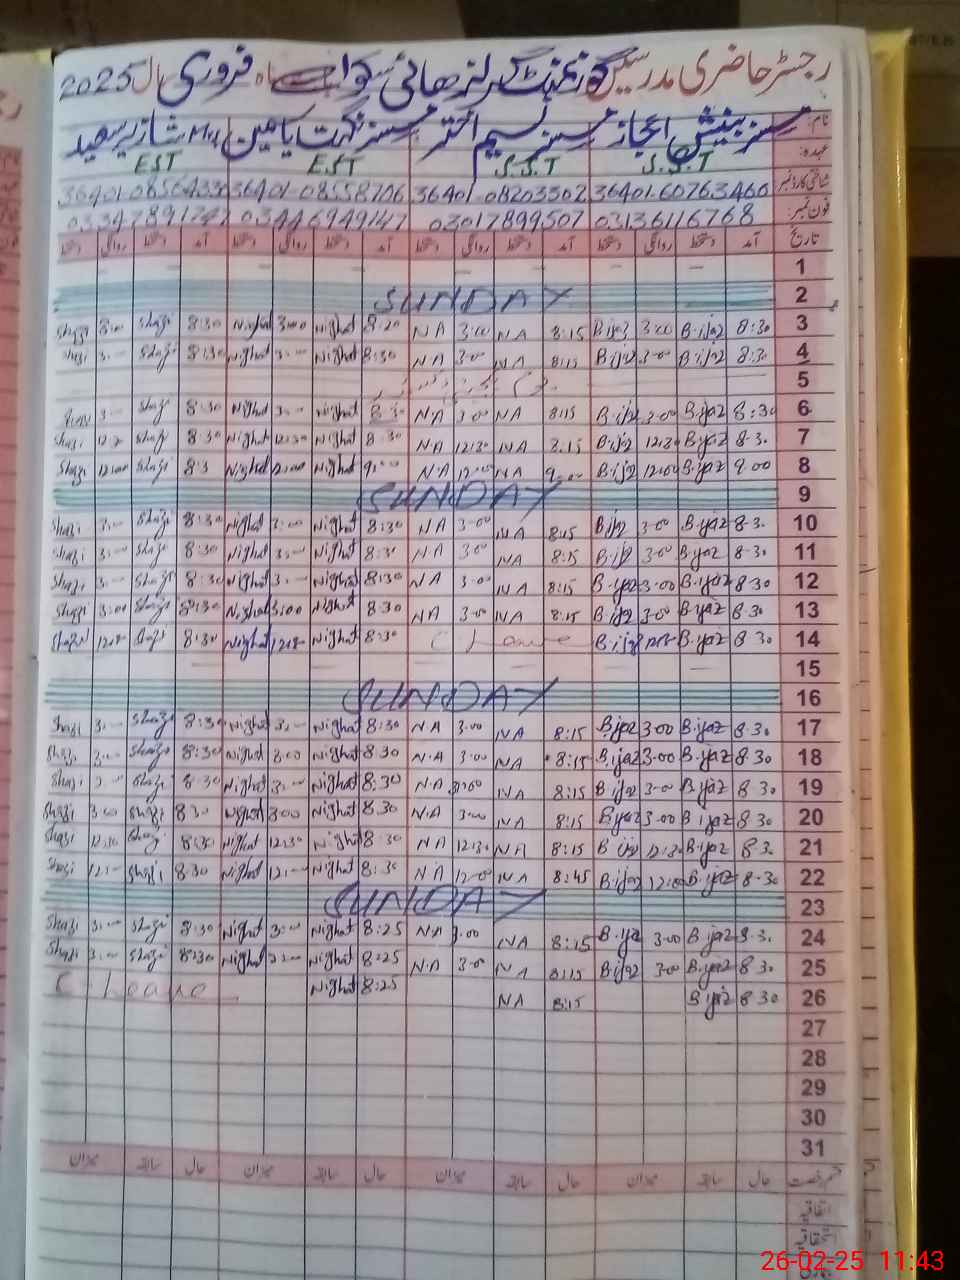 رجسٹر حاضری مدرسین گورنمنٹ گرلز ھائی سکول ماہ فروری سال 2025
نام: مسز بینش اعجاز مسز نسیم اختر مسز نگہت یاسمین Miss شازیہ سعید
عہدہ: S.S.T S.S.T E.S.T E.S.T
شناختی کارڈ نمبر 36401-60763466 36401-08203302 36401-08558706
فون نمبر: 03136116768 03017899507 03446949147 03347891747
تاریخ آمد دستخط روانگی دستخط آمد دستخط روانگی دستخط آمد دستخط روانگی دستخط آمد دستخط روانگی دستخط
1 — — — —
2 SUNDAY
3 8:30 B.ijaz 3:00 B.ijaz 8:15 NA 3:00 NA 8:20 Nighat 3:00 Nighat 8:30 Shazi 3:00 Shazi
4 8:30 B.ijaz 3:00 B.ijaz 8:15 NA 3:00 NA 8:30 Nighat 3:00 Nighat 8:30 Shazi 3:00 Shazi
5
6 8:30 B.ijaz 3:00 B.ijaz 8:15 NA 3:00 NA 8:30 Nighat 3:00 Nighat 8:30 Shazi 3:00
7 8:30 B.ijaz 12:30 B.ijaz 8:15 NA 12:30 NA 8:30 Nighat 12:30 Nighat 8:30 Shazi 12:30 Shazi
8 9:00 B.ijaz 12:00 B.ijaz 9:00 NA 12:00 NA 9:00 Nighat 12:00 Nighat 8:3 Shazi 12:00 Shazi
9 SUNDAY
10 8:30 B.ijaz 3:00 B.ijaz 8:15 NA 3:00 NA 8:30 Nighat 3:00 Nighat 8:30 Shazi 3:00 Shazi
11 8:30 B.ijaz 3:00 B.ijaz 8:15 NA 3:00 NA 8:30 Nighat 3:00 Nighat 8:30 Shazi 3:00 Shazi
12 8:30 B.ijaz 3:00 B.ijaz 8:15 NA 3:00 NA 8:30 Nighat 3:00 Nighat 8:30 Shazi 3:00 Shazi
13 8:30 B.ijaz 3:00 B.ijaz 8:15 NA 3:00 NA 8:30 Nighat 3:00 Nighat 8:30 Shazi 3:00 Shazi
14 8:30 B.ijaz B.ijaz C Leave 8:30 Nighat Nighat 8:30 Shazi Shazi
15 — — — —
16 SUNDAY
17 8:30 B.ijaz 3:00 B.ijaz 8:15 NA 3:00 NA 8:30 Nighat 3:00 Nighat 8:30 Shazi 3:00 Shazi
18 8:30 B.ijaz 3:00 B.ijaz 8:15 NA 3:00 NA 8:30 Nighat 3:00 Nighat 8:30 Shazi 3:00 Shazi
19 8:30 B.ijaz 3:00 B.ijaz 8:15 NA 3:00 NA 8:30 Nighat 3:00 Nighat 8:30 Shazi 3:00 Shazi
20 8:30 B.ijaz 3:00 B.ijaz 8:15 NA 3:00 NA 8:30 Nighat 3:00 Nighat 8:30 Shazi 3:00 Shazi
21 8:30 B.ijaz 12:30 B.ijaz 8:15 NA 12:30 NA 8:30 Nighat 12:30 Nighat 8:30 Shazi 12:30 Shazi
22 8:30 B.ijaz 12:00 B.ijaz 8:45 NA 12:00 NA 8:30 Nighat 12:00 Nighat 8:30 Shazi 12:00 Shazi
23 SUNDAY
24 8:30 B.ijaz 3:00 B.ijaz 8:15 NA 3:00 NA 8:25 Nighat 3:00 Nighat 8:30 Shazi 3:00 Shazi
25 8:30 B.ijaz 3:00 B.ijaz 8:15 NA 3:00 NA 8:25 Nighat 3:00 Nighat 8:30 Shazi 3:00 Shazi
26 8:30 B.ijaz 8:15 NA 8:25 Nighat C-Leave
27
28
29
30
31
قسم رخصت حال سابقہ میزان حال سابقہ میزان حال سابقہ میزان حال سابقہ میزان
اتفاقیہ
استحقاقیہ
26-02-25 11:43